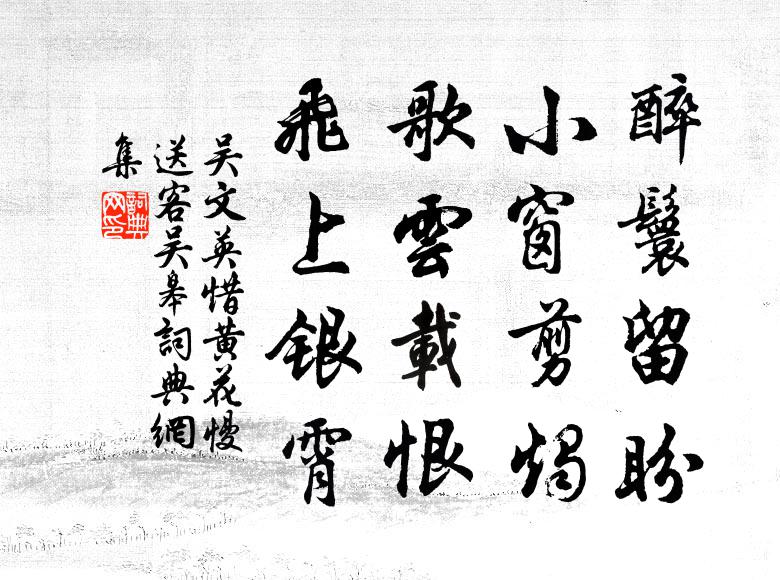 醉鬟留盼
小窗剪燭
歌雲載恨
飛上銀霄
吳文英惜黃花慢
送客吳皋詞典網
集
詞典網印